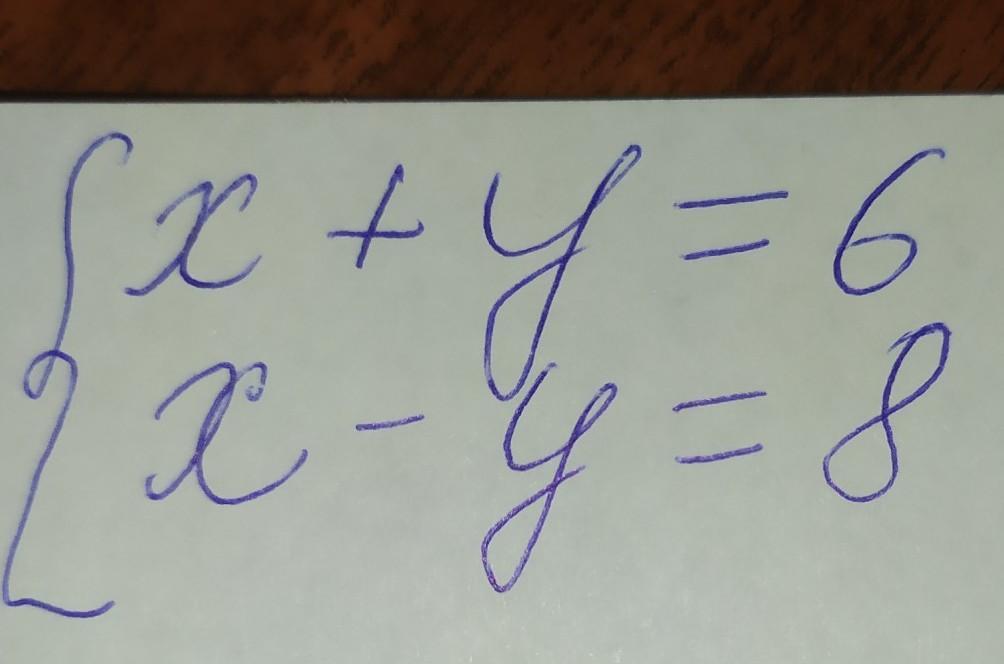 x + y = 6
x - y = 8